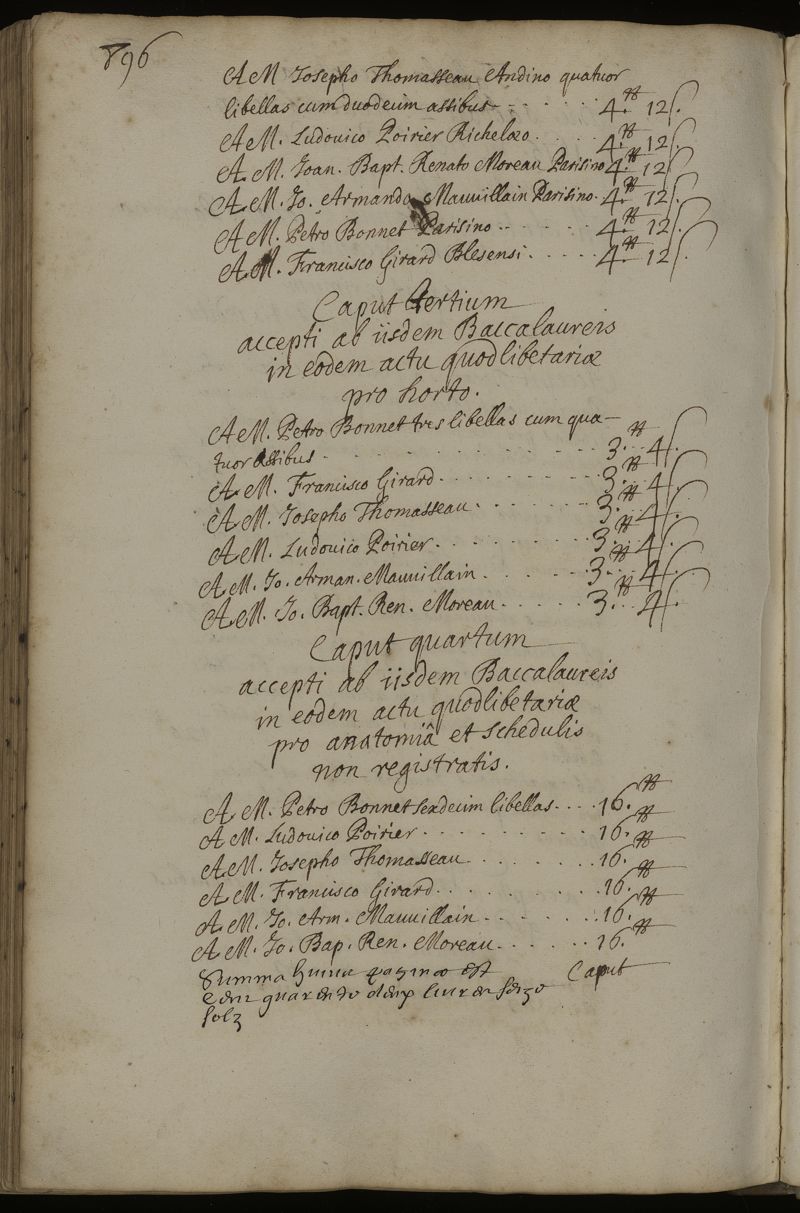 896
A M Josepho Thomasseau Andino quatuor
libellas cum duodecim assibus - - . . . . . 4.tt 12 s.
A M. Ludovico Poirier Richelæo . . . . 4.tt 12 s.
A. M. Joan. Bapt. Renato Moreau Parisino 4.tt 12 s
A. M. Jo. Armando Mauvillain Parisino. 4.tt 12 s.
A M. Petro Bonnet Parisino - - . . . . . 4.tt 12 s.
A M. Francisco Girard Blesensi . . . . . 4.tt 12 s.
Caput Tertium
accepti ab iisdem Baccalaureis
in eodem actu quodlibetariæ
pro horto.
A M. Petro Bonnet tres libellas cum qua-
tuor assibus - . . . . . . . . . . . 3.tt 4 s.
A. M. Francisco Girard . . . . . . . 3.tt 4 s.
A M. Josepho Thomasseau . . . . . 3.tt 4 s.
A M. Ludovico Poirier . . . . . . . 3.tt 4 s.
A M. Jo. Arman. Mauvillain . . . . . 3.tt 4 s.
A. M. Jo. Bapt. Ren. Moreau . . . . . 3.tt 4 s.
Caput quartum
accepti ab iisdem Baccalaureis
in eodem actu quodlibetariæ
pro anatomiâ et schedulis
non registratis.
A M. Petro Bonnet sexdecim libellas . . . . 16.tt
A M. Ludovico Poirier . . . . . . . . . 16.tt
A M. Josepho Thomasseau . . . . . . . 16.tt
A M. Francisco Girard . . . . . . . . 16.tt
A M. Jo. Arm. Mauvillain . . . . . . . 16.tt
A M. Jo. Bap. Ren. Moreau . . . . . . 16.tt
Summa huius paginæ est
Cent quarente deux livres seize
solz
Caput